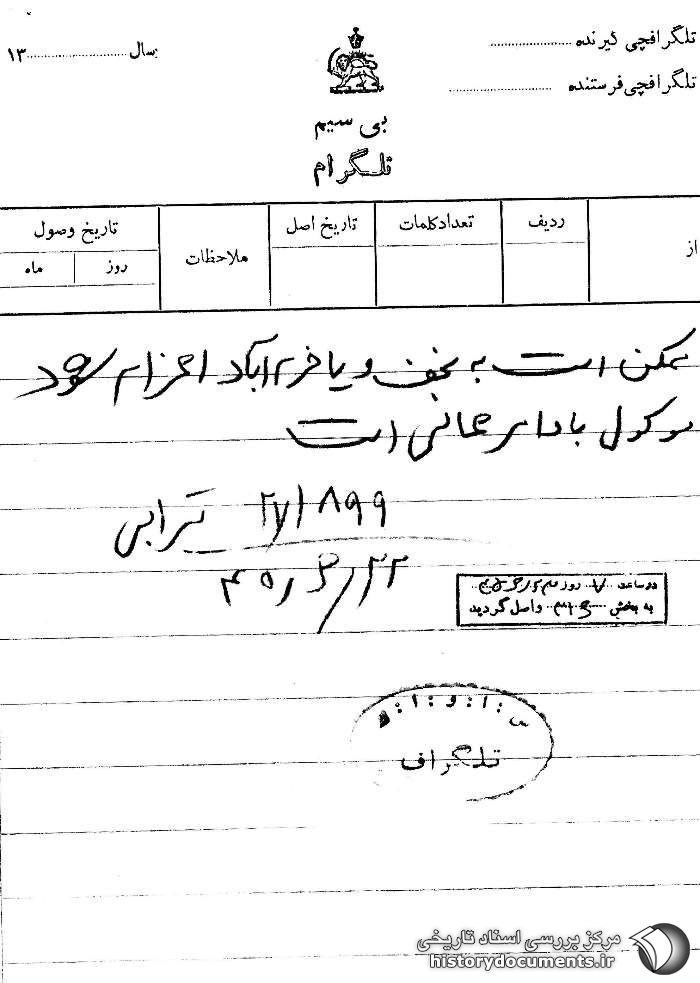 تلگرافچی گیرنده ....................
سال .......................۱۳
تلگرافچی فرستنده ....................
بی سیم
تلگرام
از
ردیف
تعداد کلمات
تاریخ اصل
ملاحظات
تاریخ وصول
روز
ماه
ممکن است به نجف و یا خرم آباد اعزام شود
موکول با وامر عالی است
۲۷۱۸۹۹ ترابی
۴۹/۳/۲۲
در ساعت روز
به بخش ۳۱۶ واصل گردید
س.ا.و.ا.ک
تلگراف
مرکز بررسی اسناد تاریخی
historydocuments.ir